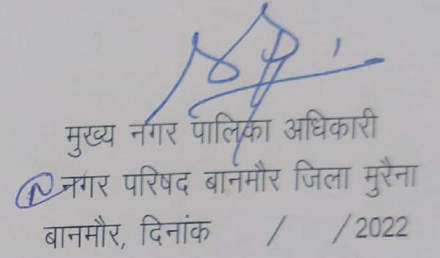 मुख्य नगर पालिका अधिकारी
नगर परिषद बानमौर जिला मुरैना
बानमौर, दिनांक / / 2022